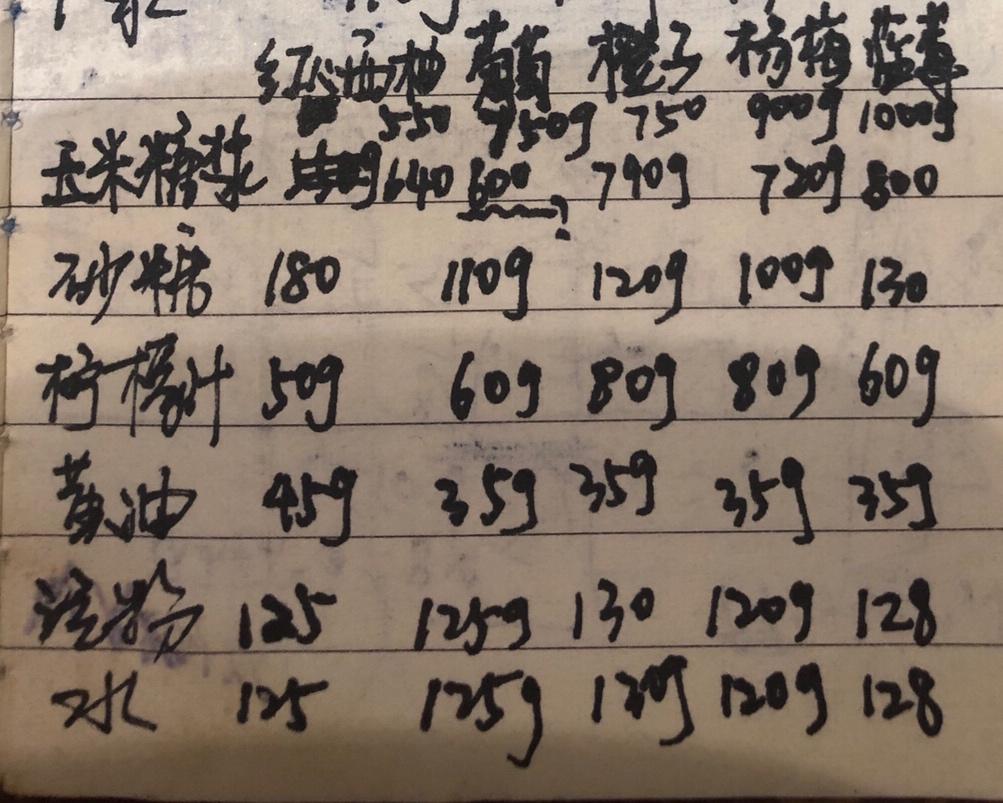 红心西柚 葡萄 橙子 杨梅 蓝莓
550 750g 750 900g 1000g
玉米糖浆 640 600 790g 720g 800
砂糖 180 110g 120g 100g 130
柠檬汁 50g 60g 80g 80g 60g
黄油 45g 35g 35g 35g 35g
淀粉 125 125g 130 120g 128
水 125 125g 130g 120g 128